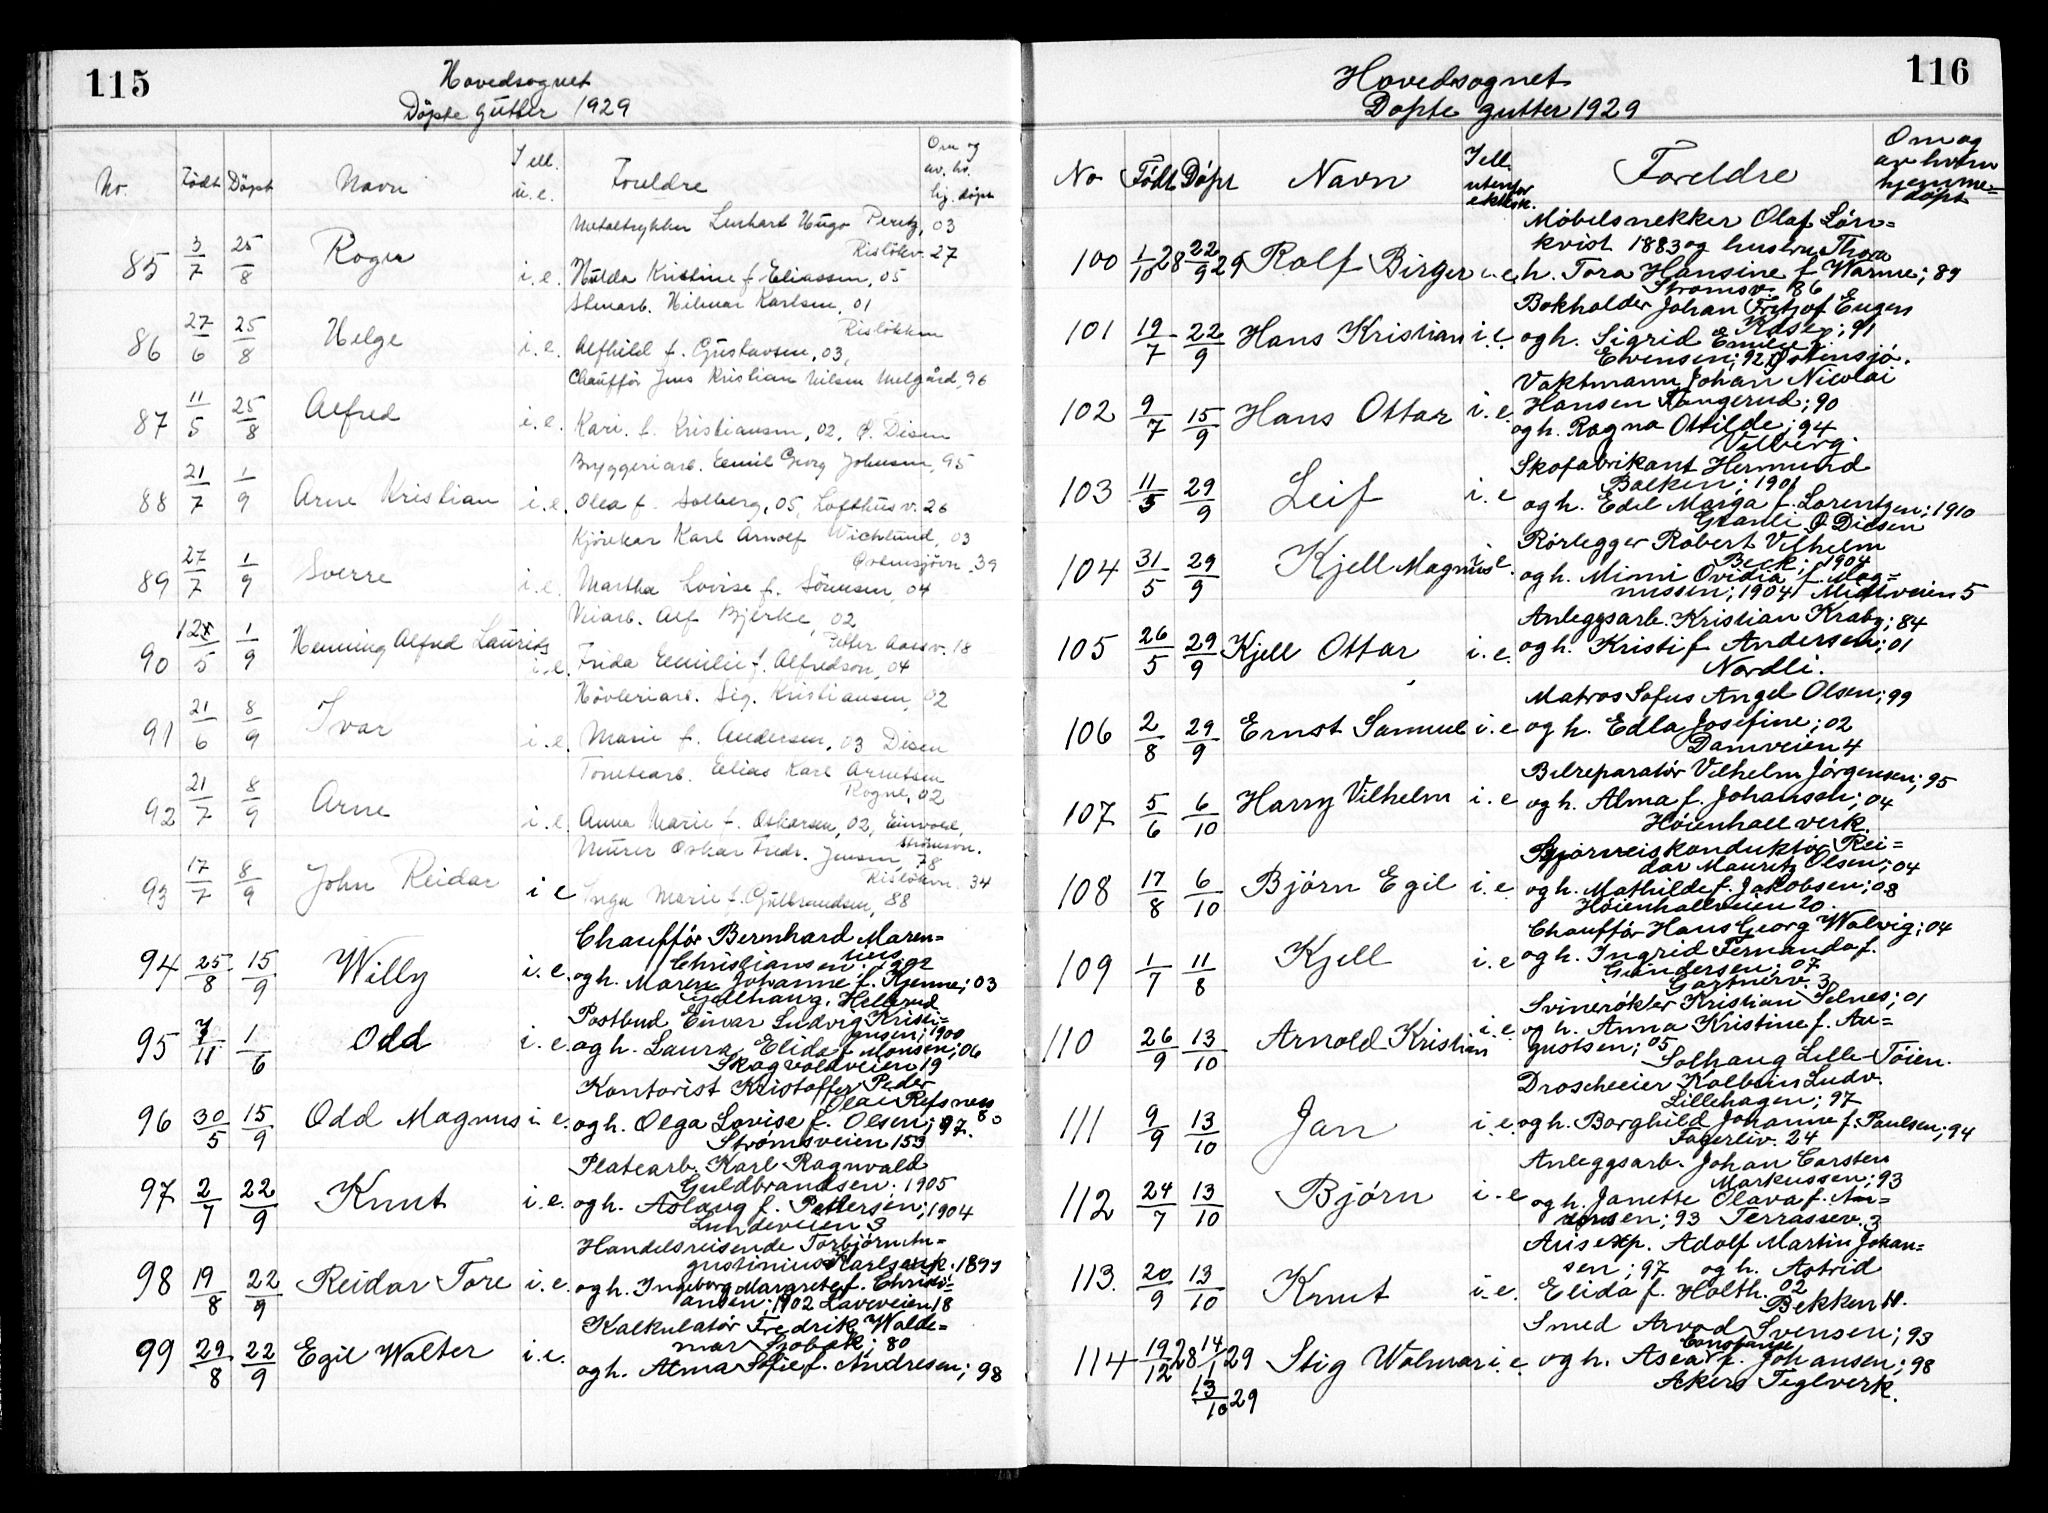 115
Hovedsognet
Döpte gutter 1929
Nr. Födt Döpt Navn I ell. u. e. Foreldre Om og av. hv. hj. döpt
Metaltrykker Lenhart Hugo Peretz, 03
Risløkv. 27
85 3/7 25/8 Roger i. e. Hulda Kristine f. Eliassen, 05
Stenarb. Hilmar Karlsen, 01
Risløkken
86 27/6 25/8 Helge i. e. Alfhild f. Gustavsen, 03,
Chaufför Jens Kristian Nilsen Melgård, 96
87 11/5 25/8 Alfred i. e. Kari f. Kristiansen, 02, Ø. Disen
Bryggeriarb. Emil Georg Johnsen, 95
88 21/7 1/9 Arne Kristian i. e. Olea f. Solberg, 05, Lofthusv. 26
Kjörekar Karl Arnolf Wichlund, 03
Østensjövn. 39
89 27/7 1/9 Sverre i. e. Martha Lovise f. Sörensen, 04
Veiarb. Alf Bjerke, 02
Petter Aasv. 18
90 12/5 1/9 Henning Alfred Laurits i. e. Frida Emilie f. Alfredson, 04
Hövleriarb. Sig. Kristiansen, 02
91 21/6 8/9 Ivar i. e. Marie f. Andersen, 03 Disen
Tomtearb. Elias Karl Arnetsen
Rogne, 02
92 21/7 8/9 Arne i. e. Anna Marie f. Oskarsen, 02, Einvold,
Strömsv.
Murer Oskar Fredr. Jensen, 78
Risløkvn. 34
93 17/7 8/9 John Reidar i e Inga Marie f. Gulbrandsen, 88
Chauffør Bernhard Maren=
ius
Christiansen; 1902
94 25/8 15/9 Willy i. e. og h. Maren Johanne f. Kjenne; 03
Hellerud
Postbud Einar Ludvig Kristi=
ansen; 1900
95 7/11 1/6 Odd i. e. og h. Laura Elida f. Monsen; 06
Skogvoldveien 19
Kontorist Kristoffer Peder
Olai Refsnes 80
96 30/5 15/9 Odd Magnus i e. og h. Olga Lovise f. Olsen; 97.
Strømsveien 153
Platearb. Karl Ragnvald
Guldbrandsen. 1905
97 2/7 22/9 Knut i. e. og h. Aslaug f. Pettersen; 1904
Lundeveien 3
Handelsreisende Torbjørn Au=
gustinius Karlsen. 1899
98 19/8 22/9 Reidar Tore i. e. og h. Ingeborg Margrete f. Christi=
ansen; 1902 Laveveien 18
Kalkulatør Fredrik Walde=
mar Sjobak; 80
99 29/8 22/9 Egil Walter i. e. og h. Alma Sofie f. Andresen; 98
116
Hovedsognet
Døpte gutter 1929
No Født Døpt Navn I ell utenfor ektesk. Foreldre Om og av hvem hjemme=døpt
Møbelsnekker Olaf Løn=
kvist 1883 og hustru Thora
100 1/10 28 22/9 29 Rolf Birger i e h. Tora Hansine f. Warme; 89
Strømsv. 86
Bokholder Johan Fritjof Eugen
101 19/7 22/9 Hans Kristian i. e. og h. Sigrid Emilie f.
Evensen; 92 Østensjø.
Vaktmann Johan Nicolai
102 9/7 15/9 Hans Ottar i. e. Hansen Kongerud; 90
og h. Ragna Ottilde; 94
Vilberg.
Skofabrikant Hermund
Bakken; 1901
103 11/5 29/9 Leif i. e og h. Edel Marga f. Lorentzen; 1910
Granli Ø Disen
Rørlegger Robert Vilhelm
Beck; 1904
104 31/5 29/9 Kjell Magnus i e. og h. Mimi Ovidia f. Mag=
nussen; 1904 Midtveien 5
Anleggsarb. Kristian Kraby; 84
105 26/5 29/9 Kjell Ottar i. e. og h. Kristi f Andersen; 01
Nordli.
Matros Sofus Angel Olsen; 99
106 2/8 29/9 Ernst Samuel i. e og h. Edla Josefine; 02
Damveien 4
Bilreparatør Vilhelm Jørgensen; 95
107 5/6 6/10 Harry Vilhelm i. e og h. Alma f. Johansen; 04
Høienhall verk.
Sporveiskonduktør Rei=
dar Mauritz Olsen; 04
108 17/8 6/10 Bjørn Egil i. e. og h. Mathilde f. Jakobsen; 08
Høienhallveien 20.
Chauffør Hans Georg Walvig; 04
109 1/7 11/8 Kjell i. e og h. Ingrid Fernanda f.
Gundersen; 07
Gartnerv. 3
Svinerøkter Kristian Selnes; 01
110 26/9 13/10 Arnold Kristian i. e. og h. Anna Kristine f. Au=
gustsen; 05
Solhaug Lille Tøien.
Droscheeier Kolbein Ludv.
Lillehagen; 97
111 9/9 13/10 Jan i. e. og h. Borghild Johanne f. Paulsen; 94
Fagerliv. 24
Anleggsarb. Johan Carsten
Markussen; 93
112 24/7 13/10 Bjørn i. e og h. Janette Olava f. An=
densen; 93 Terrassev. 3
Avisexp. Adolf Martin Johan=
sen; 97 og h. Astrid
113. 20/9 13/10 Knut i. e. Elida f. Holth. 02
Bekken 10.
Smed Arvod Svensen; 93
Constance
114 19/12 28 14/1 29 Stig Walmar i. e. og h. Asea f. Johansen; 98
Akers Teglverk.
13/10 29